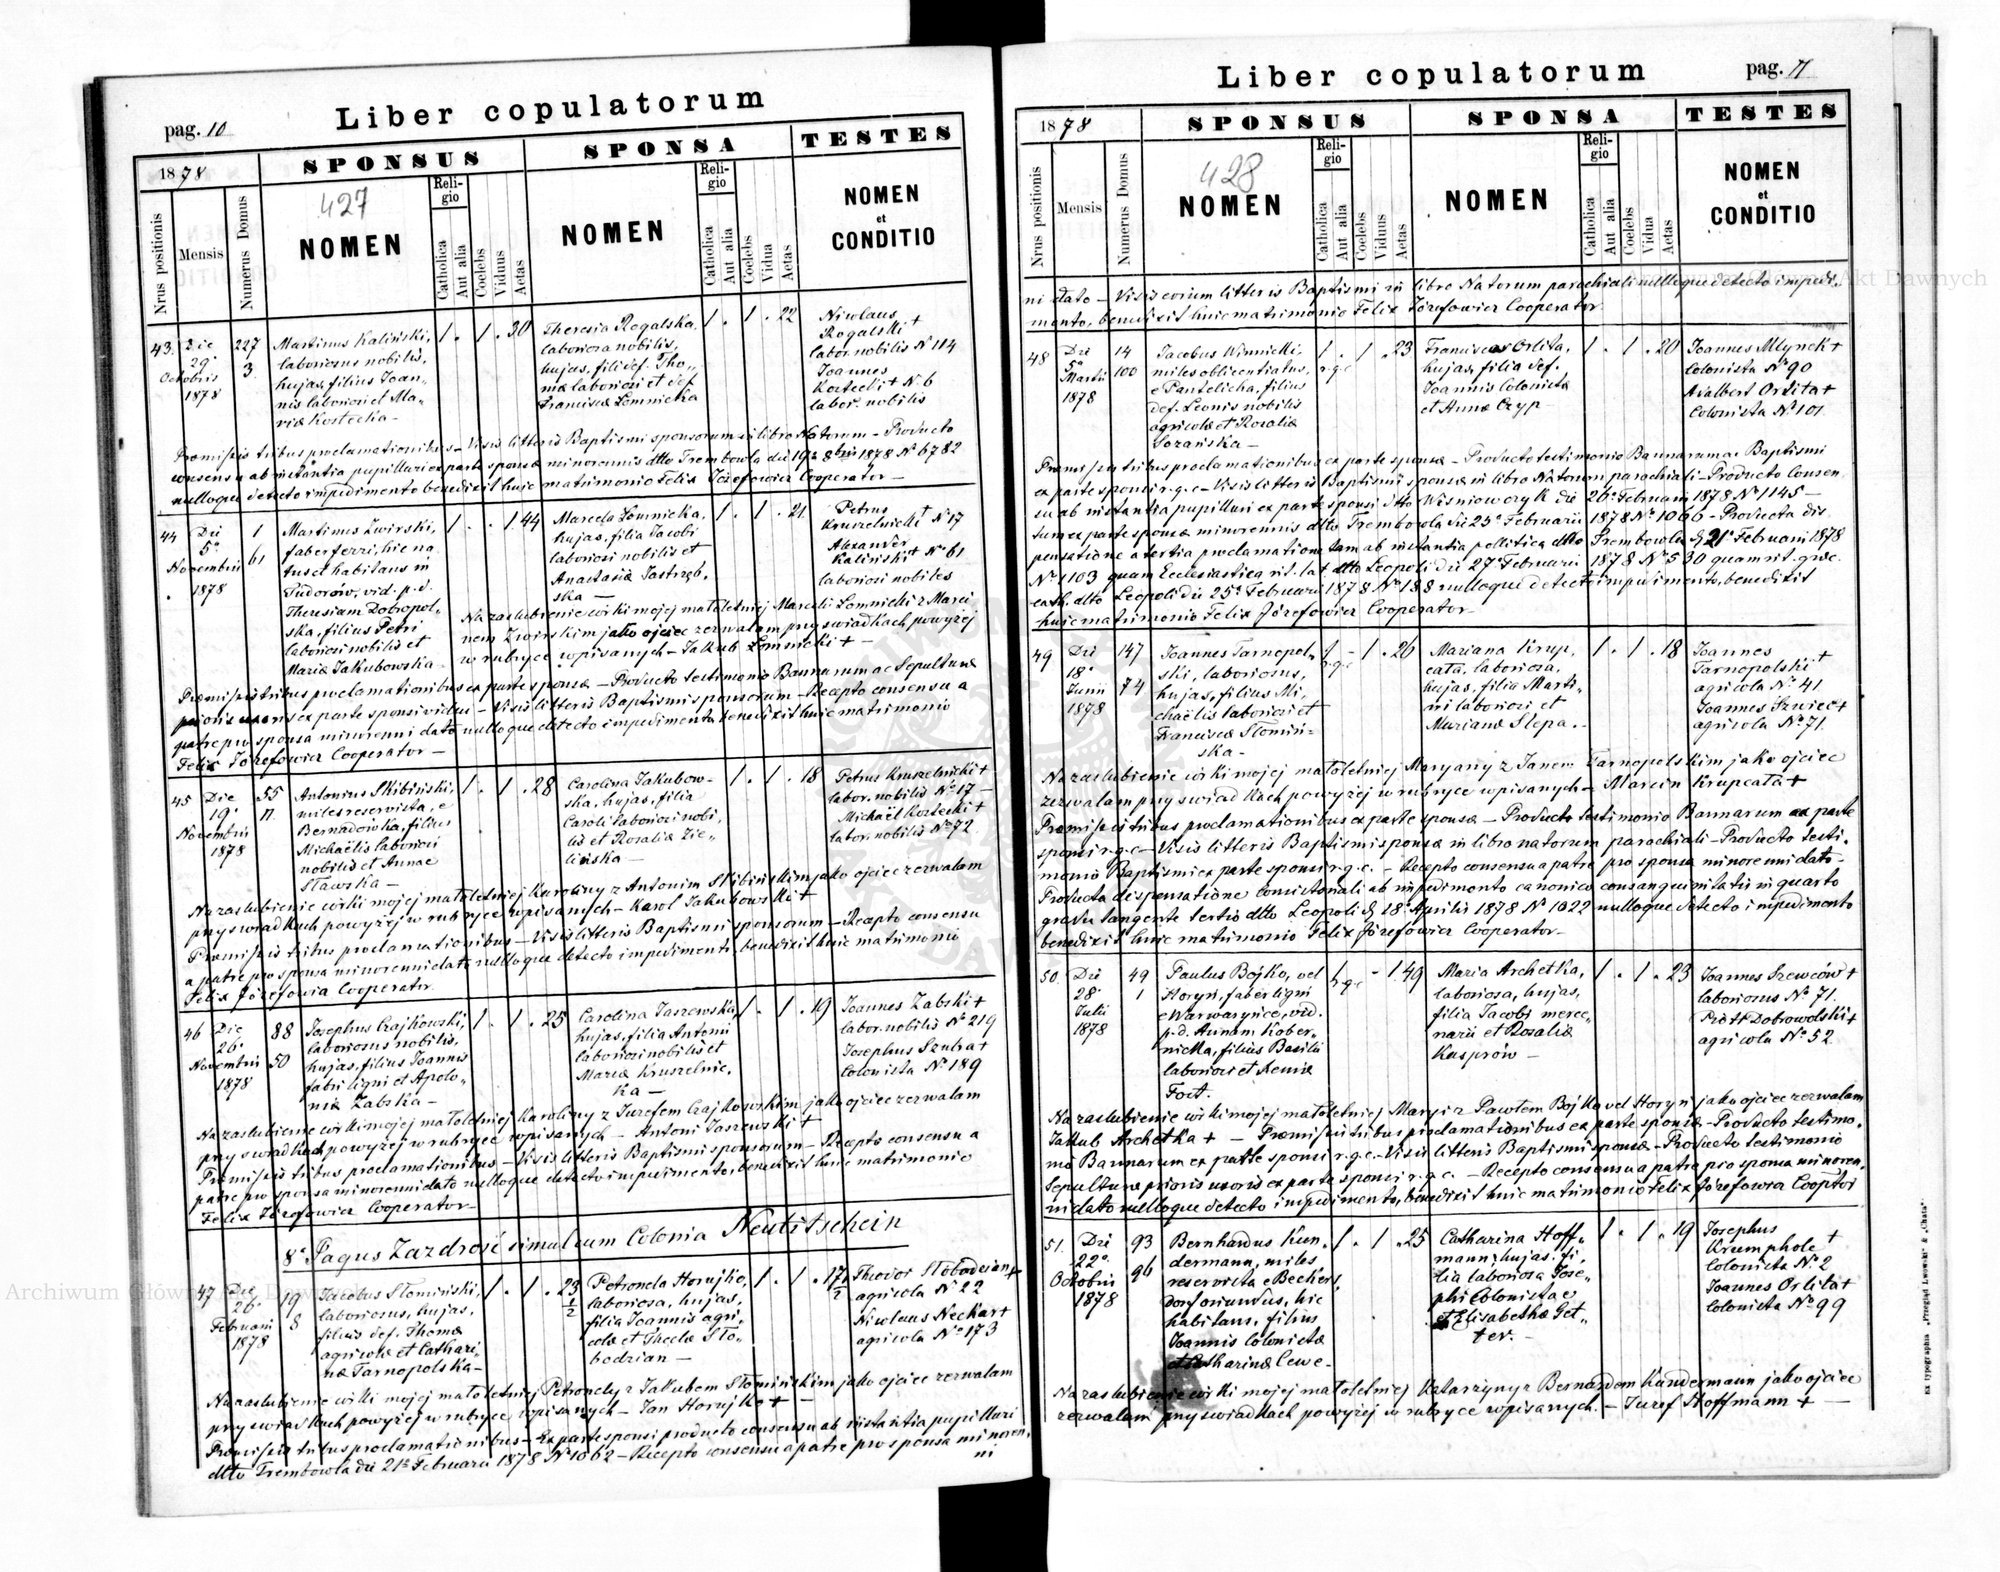 Liber copulatorum
pag. 10
1878
SPONSUS
SPONSA
TESTES
Nrus positionis
Mensis
Numerus Domus
427
NOMEN
Reli-
gio
Catholica
Aut alia
Coelebs
Viduus
Aetas
NOMEN
Reli-
gio
Catholica
Aut alia
Coelebs
Vidua
Aetas
NOMEN
et
CONDITIO
43. Die 29a Octobris 1878
227
3
Martinus Kaliński,
laboriosus nobilis,
hujas, filius Joan-
nis laboriosi et Ma-
riæ Kostecka -
1 . 1 . 30
Theresia Rogalska,
laboriosa nobilis,
hujas, fili def. Tho-
mæ laboriosi et def.
Franciscæ Łomnicka
1 . 1 . 22
Nicolaus
Rogalski +
labor. nobilis N 114
Joannes
Kostecki + N. 6
labor. nobilis
Præmissis tribus proclamationibus - Visis litteris Baptismi sponsorum in libro Natorum - Producto
consensu ab instantia pupillari ex parte sponsæ minorennis dtto Trembowla die 19a 8bris 1878 N 6782
nulloque detecto impedimento benedixit huic matrimonio Felix Józefowicz Cooperator -
44 Die 5a Novembris 1878
1
61
Martinus Żwirski,
faber ferri, hic na-
tus et habitans in
Tudorów, vid. p. d.
Theresiam Dobropol-
ska, filius Petri
laboriosi nobilis et
Mariæ Jakubowska
1 . . 1. 44
Marcela Łomnicka,
hujas, filia Jacobi
laboriosi nobilis et
Anastasiæ Jastrzęb-
ska -
1 . 1 . 21
Petrus
Kruszelnicki + N 17
Alexander
Kaliński + No 61
laboriosi nobiles
Na zaślubienie córki mojej małoletniej Marceli Łomnicki z Marci
nem Żwirskim jako ojciec zezwalam przy świadkach powyżej
w rubryce wpisanych - Jakub Łomnicki + -
Præmissis tribus proclamationibus ex parte sponsæ - Producto testimonio Bannorum ac Sepulturæ
prioris uxoris ex parte sponsi vidui - Visis litteris Baptismi sponsorum - Recepto consensu a
patre pro sponsa minorenni dato nulloque detecto impedimento benedixit huic matrimonio
Felix Józefowicz Cooperator -
45 Die 19a Novembris 1878
55
17.
Antonius Skibiński,
miles reservista, e
Bernadówka, filius
Michaëlis laboriosi
nobilis et Annae
Sławska -
1 . 1 . 28
Carolina Jakubow-
ska, hujas, filia
Caroli laboriosi nobi-
lis et Rosaliæ Zie-
lińska -
1 . 1 . 18
Petrus Kruszelnicki +
labor. nobilis No 17 -
Michaël Kostecki +
labor. nobilis No 72
Na zaślubienie córki mojej małoletniej Karoliny z Antonim Skibińskim jako ojciec zezwalam
przy świadkach powyżej w rubryce wpisanych - Karol Jakubowski +
Præmissis tribus proclamationibus - Visis litteris Baptismi sponsorum - Recepto consensu
a patre pro sponsa minorenni dato nulloque detecto impedimento, benedixit huic matrimonio
Felix Józefowicz Cooperator.
46 Die 26a Novembris 1878
88
50
Josephus Czajkowski,
laboriosus nobilis,
hujas, filius Joannis
fabri ligni et Apolo-
niæ Zabska -
1 . 1 . 25
Carolina Jaszewska,
hujas, filia Antoni
laboriosi nobilis et
Mariæ Kruszelnic-
ka -
1 . 1 . 19
Joannes Zabski +
labor. nobilis No 219
Josephus Szuba +
Colonista No 189
Na zaślubienie córki mojej małoletniej Karoliny z Józefem Czajkowskim jako ojciec zezwalam
przy świadkach powyżej w rubryce wpisanych - Antoni Jaszewski +
Præmissis tribus proclamationibus - Visis litteris Baptismi sponsorum - Recepto consensu a
patre pro sponsa minorenni dato nulloque detecto impedimento, benedixit huic matrimonio
Felix Józefowicz Cooperator -
8o Pagus Zazdrość simul cum Colonia Neutitschein
47 Die 26a Februarii 1878
19
8
Jacobus Słomiński,
laboriosus, hujas,
filius def. Thomæ
agricolæ et Cathari-
næ Tarnopolska -
1 . 1 . 23 1/2
Petronela Hornjko,
laboriosa, hujas,
filia Joannis agri-
colæ et Theclæ Sło-
bodzian -
1 . 1 . 17 1/2
Theodor Slobodzian +
agricola No 22
Nicolaus Neckar +
agricola No 173
Na zaślubienie córki mojej małoletniej Petroneli z Jakubem Słomińskim jako ojciec zezwalam
przy świadkach powyżej w rubryce wpisanych - Jan Hornjko + -
Præmissis tribus proclamationibus - Ex parte sponsi producto consensu ab instantia pupillari
dtto Trembowla die 21a Februarii 1878 No 1062 - Recepto consensu a patre pro sponsa minoren-
ni
Liber copulatorum
pag. 11
1878
SPONSUS
SPONSA
TESTES
Nrus positionis
Mensis
Numerus Domus
428
NOMEN
Reli-
gio
Catholica
Aut alia
Coelebs
Viduus
Aetas
NOMEN
Reli-
gio
Catholica
Aut alia
Coelebs
Vidua
Aetas
NOMEN
et
CONDITIO
ni dato - Visis eorum litteris Baptismi in libro Natorum parochiali nulloque detecto impedi-
mento, benedixit huic matrimonio Felix Józefowicz Cooperator.
48 Die 5a Martii 1878
14
100
Jacobus Winnicki,
miles oblicentiatus,
e Pantelicha, filius
def. Leonis nobilis
agricolæ et Rosaliæ
Sozańska -
1 r.g.c . 1 . 23
Francisca Orlita,
hujas, filia def.
Joannis Colonistæ
et Annæ Czyp -
1 . 1 . 20
Joannes Mlynek +
Colonista No 90
Adalbert Orlita +
Colonista No 101
Præmissis tribus proclamationibus ex parte sponsæ - Producto testimonio Bannorum ac Baptismi
ex parte sponsi r.g.c. - Visis litteris Baptismi sponsæ in libro Natorum parochiali - Producto Consen-
su ab instantia pupillari ex parte sponsi dtto Wiśniowczyk die 26a Februarii 1878 No 1145 -
tum ex parte sponsæ minorennis dtto Trembowla die 25a Februarii 1878 No 1066 - Producta dis-
pensatione a tertia proclamatione tam ab instantia politica dtto Trembowla d. 21a Februarii 1878
No 1103 quam Ecclesiastica rit. lat. dtto Leopoli die 27a Februarii 1878 No 530 quam rit. græc.
cath. dtto Leopoli die 25a Februarii 1878 No 188 nulloque detecto impedimento, benedixit
huic matrimonio Felix Józefowicz Cooperator -
49 Die 18a Junii 1878
147
74
Joannes Tarnopol-
ski, laboriosus,
hujas, filius Mi-
chaëlis laboriosi et
Franciscæ Słomiń-
ska -
1 r.g.c - 1 . 26
Mariana Krup-
cata, laboriosa,
hujas, filia Marti-
ni laboriosi et
Marianæ Slepa . -
1 . 1 . 18
Joannes
Tarnopolski +
agricola No 41
Joannes Szwiec +
agricola No 71.
Na zaślubienie córki mojej małoletniej Maryany z Janem Tarnopolskim jako ojciec
zezwalam przy świadkach powyżej w rubryce wpisanych - Marcin Krupcata +
Præmissis tribus proclamationibus ex parte sponsæ - Producto testimonio Bannorum ex parte
sponsi r.g.c. - Visis litteris Baptismi sponsæ in libro natorum parochiali - Producto testi-
monio Baptismi ex parte sponsi r.g.c. - Recepto consensu a patre pro sponsa minorenni dato -
Producta dispensatione Consistoriali ab impedimento canonico consanguinitatis in quarto
gradu tangente tertio dtto Leopoli d. 18a Aprilis 1878 No 1022 nulloque detecto impedimento
benedixit huic matrimonio Felix Józefowicz Cooperator -
50. Die 28a Julii 1878
49
1
Paulus Bojko, vel
Horyń, faber ligni
e Warwaryńce, vid.
p. d. Annam Kober-
nicka, filius Basilii
laboriosi et Xeniæ
Fort.
1 r.g.c - 1. 49
Maria Archetka,
laboriosa, hujas,
filia Jacobi merce-
narii et Rosaliæ
Kasprów -
1 . 1 . 23
Joannes Szewców +
laboriosus No 71.
Piotr Dobrowolski +
agricola No 52
Na zaślubienie córki mojej małoletniej Maryi z Pawłem Bojko vel Horyń jako ojciec zezwalam
Jakub Archetka + - Præmissis tribus proclamationibus ex parte sponsæ - Producto testimo-
nio Bannorum ex parte sponsi r.g.c. - Visis litteris Baptismi sponsæ - Producto testimonio
Sepulturæ prioris uxoris ex parte sponsi r.g.c. - Recepto consensu a patre pro sponsa minoren-
ni dato nulloque detecto impedimento, benedixit huic matrimonio Felix Józefowicz Cooptor
51. Die 22a Octobris 1878
93
96
Bernhardus Kun-
dermann, miles
reservista e Beckers-
dorf oriundus, hic
habitans, filius
Joannis Colonistæ
et Catharinæ Cewe -
1 . 1 . 25
Catharina Hoff-
mann, hujas, fi-
lia laboriosa Jose-
phi Colonistae
et Elisabethæ Get-
ter. -
1 . 1 . 19
Josephus
Krumphole +
colonista No 2
Joannes Orlita +
Colonista No 99
Na zaślubienie córki mojej małoletniej Katarzyny z Bernardem Kundermann jako ojciec
zezwalam przy świadkach powyżej w rubryce wpisanych - Józef Hoffmann + -
ex typographia „Przegląd Lwowski" & „Chata".
Archiwum Główne Akt Dawnych
Archiwum Główne Akt Dawnych